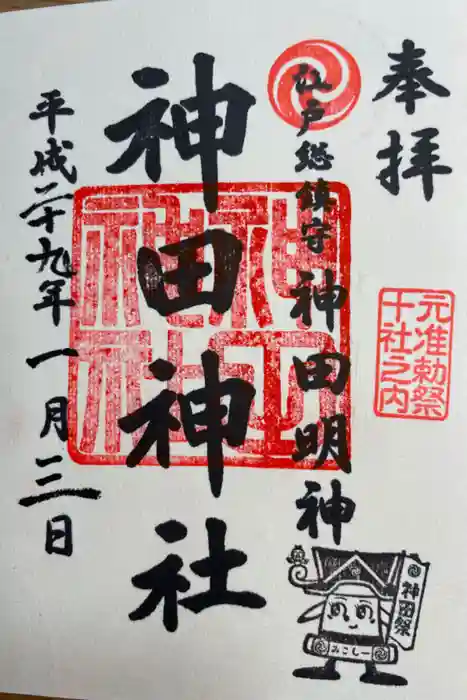 奉拝
元准勅祭
十社之内
江戸総鎮守 神田明神
神田神社
平成二十九年一月三日
神田祭
みこしー